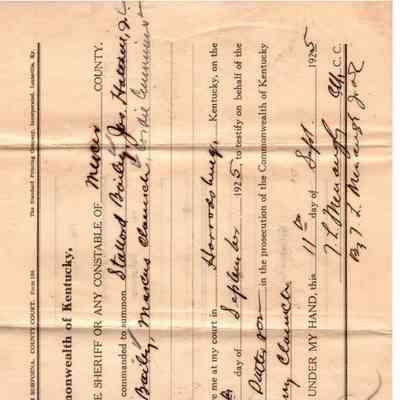 SUBPOENA, COUNTY COURT. Form 196 The Standard Printing Company, Incorporated, Louisville, Ky.
monwealth of Kentucky,
E SHERIFF OR ANY CONSTABLE OF Mercer COUNTY.
commanded to summon Stallard Bailey, Jas. Holden, Jr
Bailey, Marcus Claunch, Cummins
re me at my court in Harrodsburg, Kentucky, on the
day of September 1925, to testify on behalf of the
in the prosecution of the Commonwealth of Kentucky
Claunch
UNDER MY HAND, this 11th day of Sept. 1925
T. L. Menaugh Clk, C. C.
By T. L. Menaugh